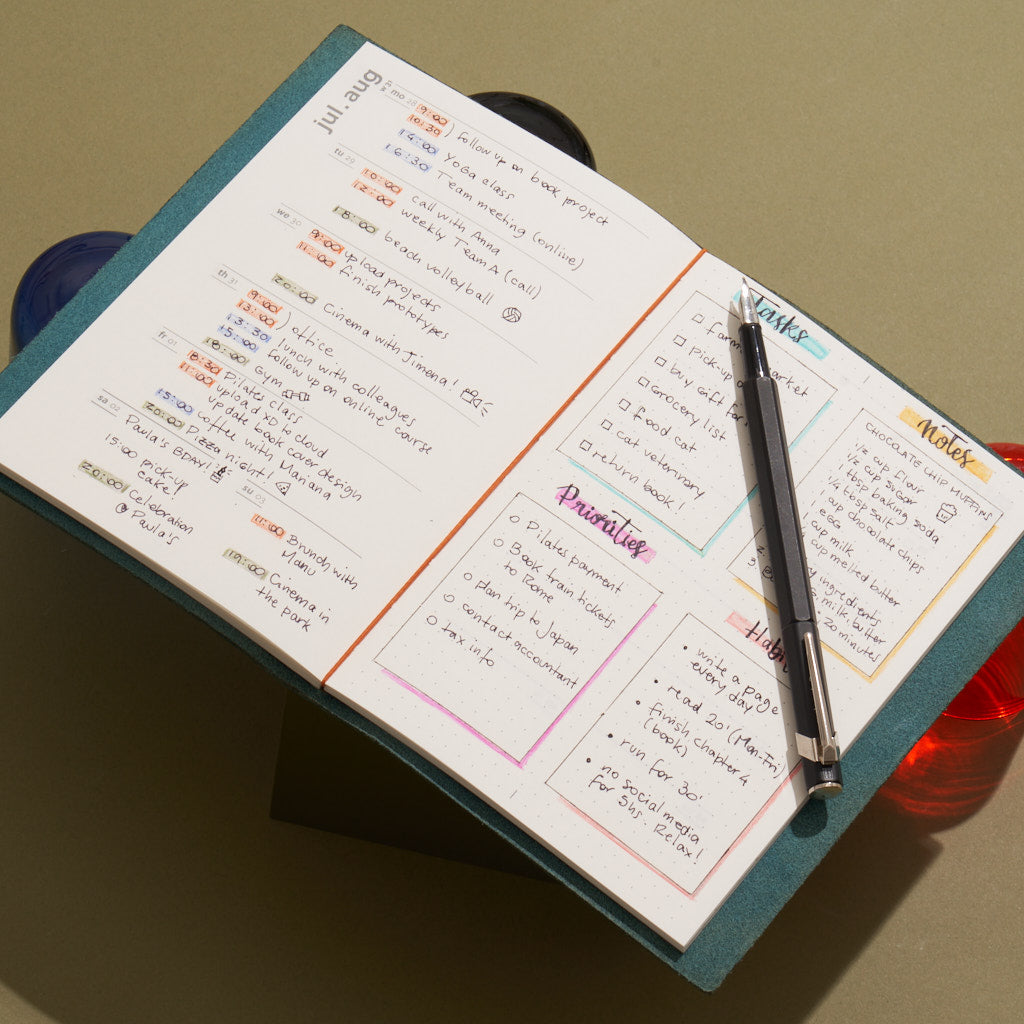 jul. aug
mo 28
9:00
10:30 ) follow up on book project
14:00 YOGA class
16:30 Team meeting (online)
tu 29
10:00 call with Anna
12:00 weekly Team A (call)
18:00 beach volleyball
we 30
9:00 upload projects
11:00 finish prototypes
20:00 Cinema with Jimena!
th 31
9:00
13:00 ) office
13:30 lunch with colleagues
15:00 follow up on online course
18:00 Gym
fr 01
8:30 Pilates class
11:00 upload XD to cloud
update book cover design
15:00 coffee with Mariana
20:00 Pizza night!
sa 02
Paula's BDAY!
15:00 pick-up
cake!
20:00 Celebration
@ Paula's
su 03
11:00 Brunch with
Manu
19:00 Cinema in
the park
Tasks
market
pick-up
buy gift for
Grocery list
food cat
cat veterinary
return book!
Priorities
Pilates payment
Book train tickets
to Rome
plan trip to Japan
contact accountant
tax info
notes
CHOCOLATE CHIP MUFFINS
1/2 cup flour
1/2 cup sugar
1 tbsp baking soda
1/4 tbsp salt
1 cup chocolate chips
egg
cup milk
cup melted butter
ingredients
milk, butter
20 minutes
write a page
every day
read 20' (Mon-Fri)
finish chapter 4
(book)
run for 30'
no social media
for 5hs. Relax!